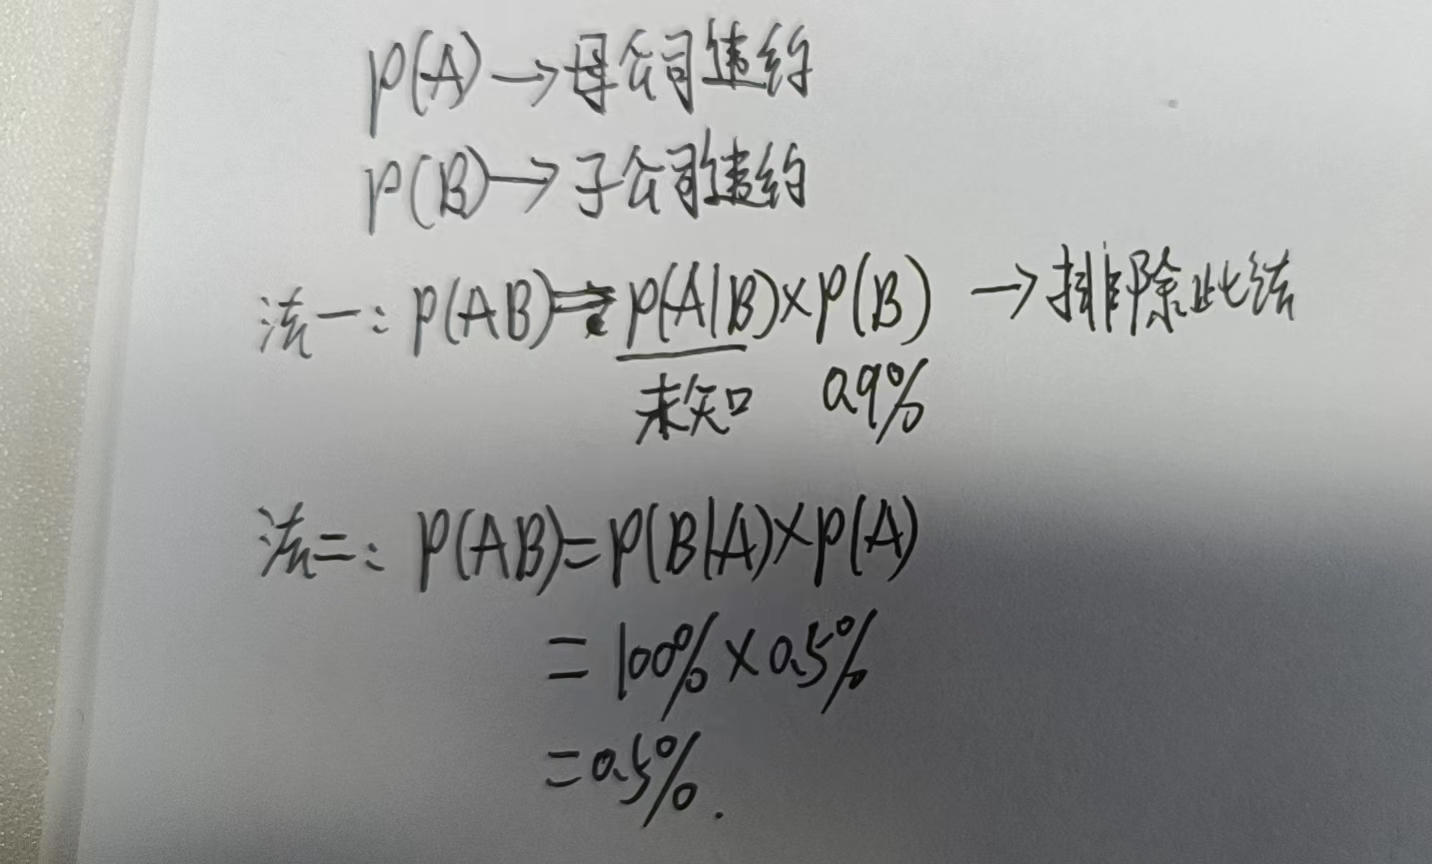 P(A)→母公司违约
P(B)→子公司违约
法一:P(AB)=P(A|B)×P(B) →排除此法
未知 0.9%
法二:P(AB)=P(B|A)×P(A)
=100%×0.5%
=0.5%.